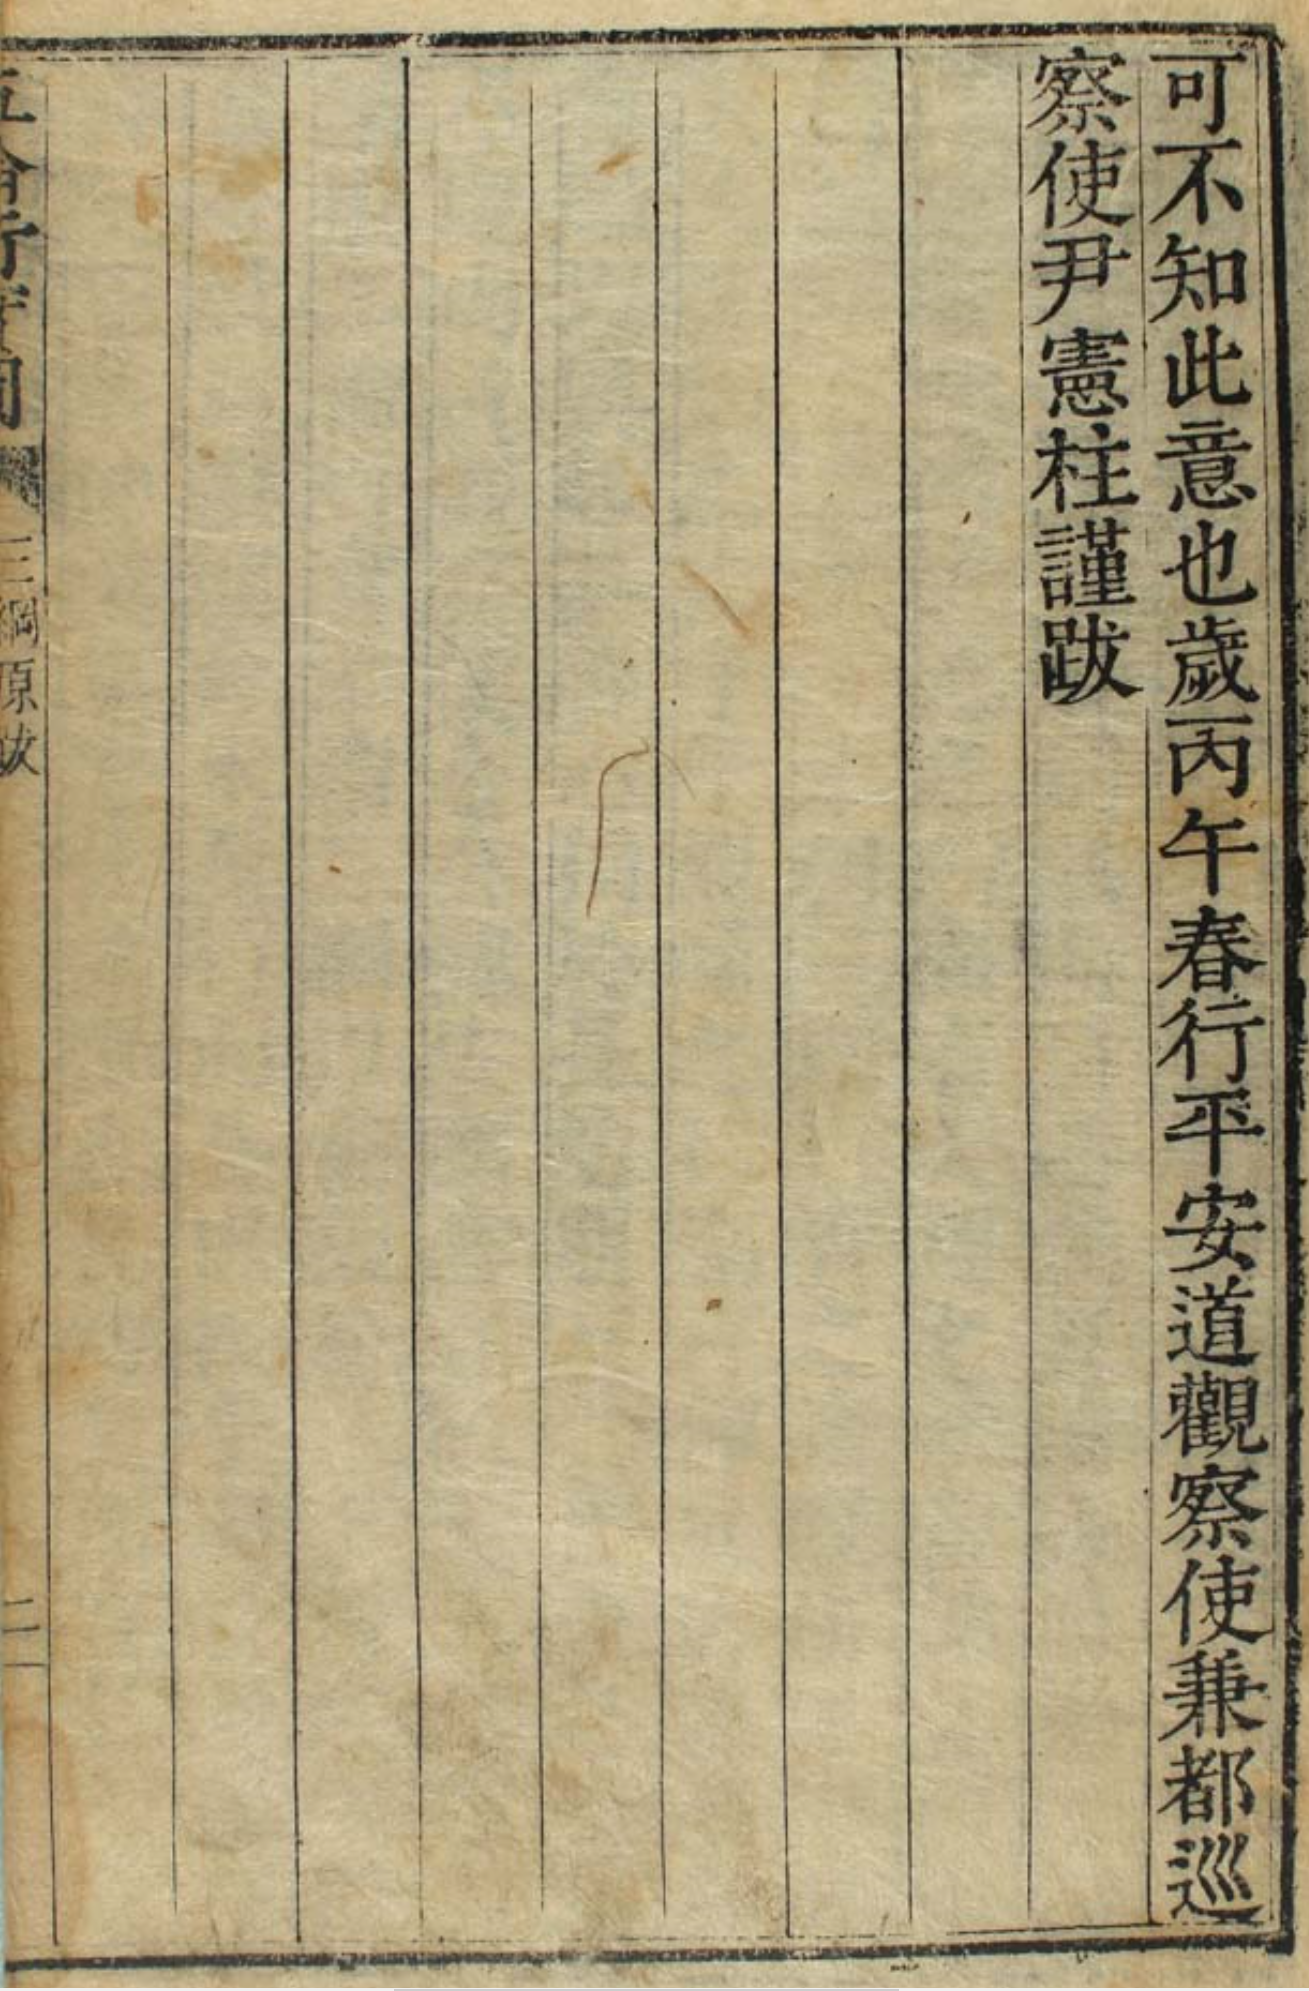 可不知此意也歲丙午春行平安道觀察使兼都巡
察使尹憲柱謹跋
五倫行實圖
三綱原跋
二